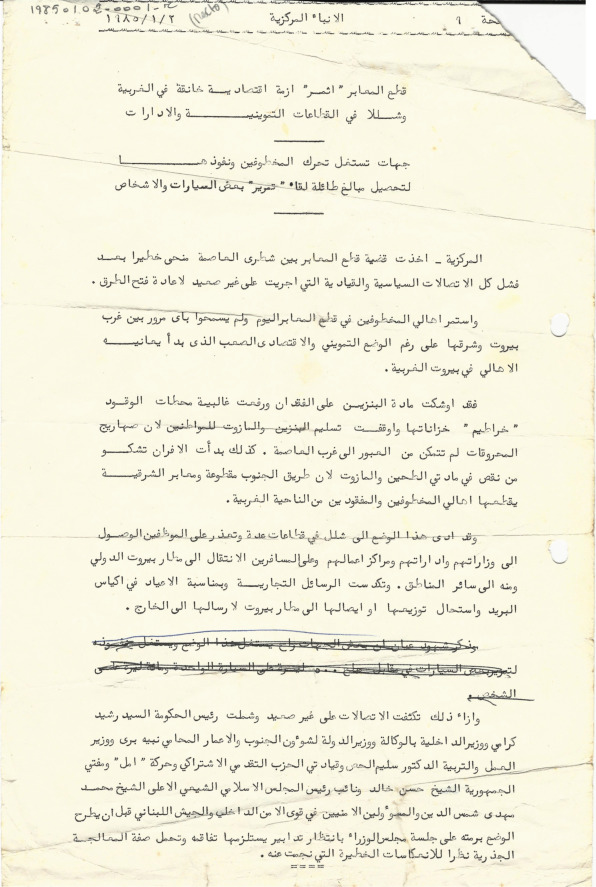 19850102-0001-
(recto)
حة ٩ الانباء المركزية ١٩٨٥/١/٢
قطع المعابر "اثمر" ازمة اقتصادية خانقة في الغربية
وشللا في القطاعات التموينية والادارات
جهات تستغل تحرك المخطوفين ونفوذها
لتحصيل مبالغ طائلة لقاء "تمرير" بعض السيارات والاشخاص
المركزية ـ اخذت قضية قطع المعابر بين شطرى العاصمة منحى خطيرا بعد
فشل كل الاتصالات السياسية والقيادية التي اجريت على غير صعيد لاعادة فتح الطرق .
واستمر اهالي المخطوفين في قطع المعابر اليوم ولم يسمحوا باى مرور بين غرب
بيروت وشرقها على رغم الوضع التمويني والاقتصادى الصعب الذى بدأ يعانيه
الاهالي في بيروت الغربية .
فقد اوشكت مادة البنزين على الفقدان ورفعت غالبية محطات الوقود
"خراطيم" خزاناتها واوقفت تسليم البنزين والمازوت للمواطنين لان صهاريج
المحروقات لم تتمكن من العبور الى غرب العاصمة . كذلك بدأت الافران تشكو
من نقص في مادتي الطحين والمازوت لان طريق الجنوب مقطوعة ومعابر الشرقية
يقطعها اهالي المخطوفين والمفقودين من الناحية الغربية .
وقد ادى هذا الوضع الى شلل في قطاعات عدة وتعذر على الموظفين الوصول
الى وزاراتهم واداراتهم ومراكز اعمالهم وعلى المسافرين الانتقال الى مطار بيروت الدولي
ومنه الى سائر المناطق . وتكدست الرسائل التجارية وبمناسبة الاعياد في اكياس
البريد واستحال توزيعها او ايصالها الى مطار بيروت لارسالها الى الخارج .
وذكر شهود عيان ان بعض الجهات راح يستغل هذا الوضع ويستغل نفوذه
لتمرير بعض السيارات في مقابل مبلغ ليرة على السيارة الواحدة ليرة على
الشخص .
وازاء ذلك تكثفت الاتصالات على غير صعيد وشملت رئيس الحكومة السيد رشيد
كرامي ووزير الداخلية بالوكالة ووزير الدولة لشؤون الجنوب والاعمار المحامي نبيه برى ووزير
العمل والتربية الدكتور سليم الحص وقيادتي الحزب التقدمي الاشتراكي وحركة "امل" ومفتي
الجمهورية الشيخ حسن خالد ونائب رئيس المجلس الاسلامي الشيعي الاعلى الشيخ محمد
مهدى شمس الدين والمسؤولين الامنيين في قوى الامن الداخلي والجيش اللبناني قبل ان يطرح
الوضع برمته على جلسة مجلس الوزراء بانتظار تدابير يستلزمها تفاقمه وتحمل صفة المعالجة
الجذرية نظرا للانعكاسات الخطيرة التي نجمت عنه .
====